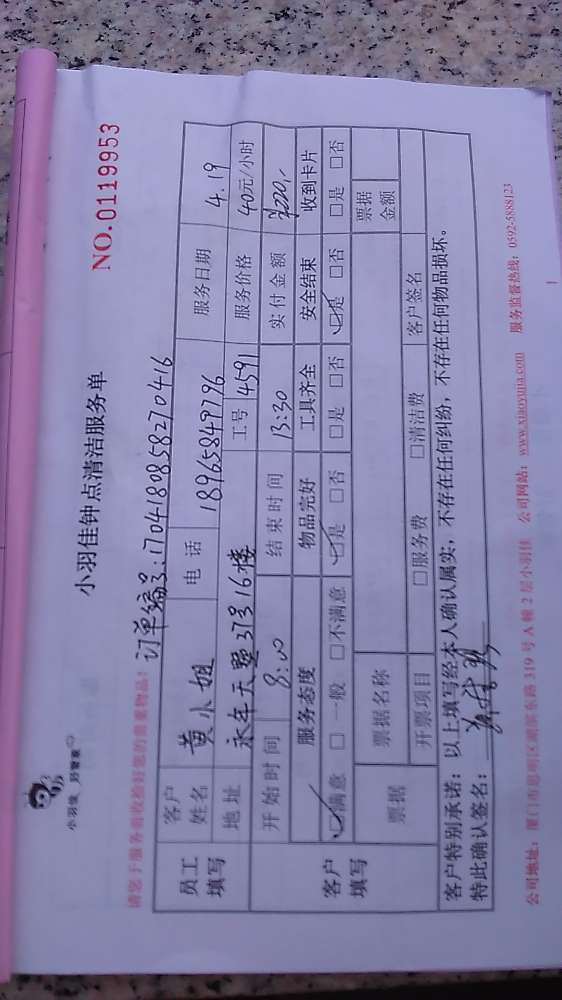 小羽佳 好管家
小羽佳钟点清洁服务单
NO.0119953
请您于服务前收捡好您的贵重物品!
订单编号:170418085827 0416
员工填写
客户姓名 黄小姐 电话 18965849796 服务日期 4.19
地址 永年天墅37号16楼 工号 4591 服务价格 40元/小时
客户填写
开始时间 8:00 结束时间 13:30 实付金额 ¥200.-
服务态度 物品完好 工具齐全 安全结束 收到卡片
☑满意 □一般 □不满意 ☑是 □否 □是 □否 ☑是 □否 □是 □否
票据 票据名称 票据金额
开票项目 □服务费 □清洁费 客户签名
客户特别承诺:以上填写经本人确认属实,不存在任何纠纷,不存在任何物品损坏。
特此确认签名:
公司地址:厦门市思明区湖滨东路319号A幢2层小羽佳 公司网站:www.xiaoyujia.com 服务监督热线:0592-5888123
1